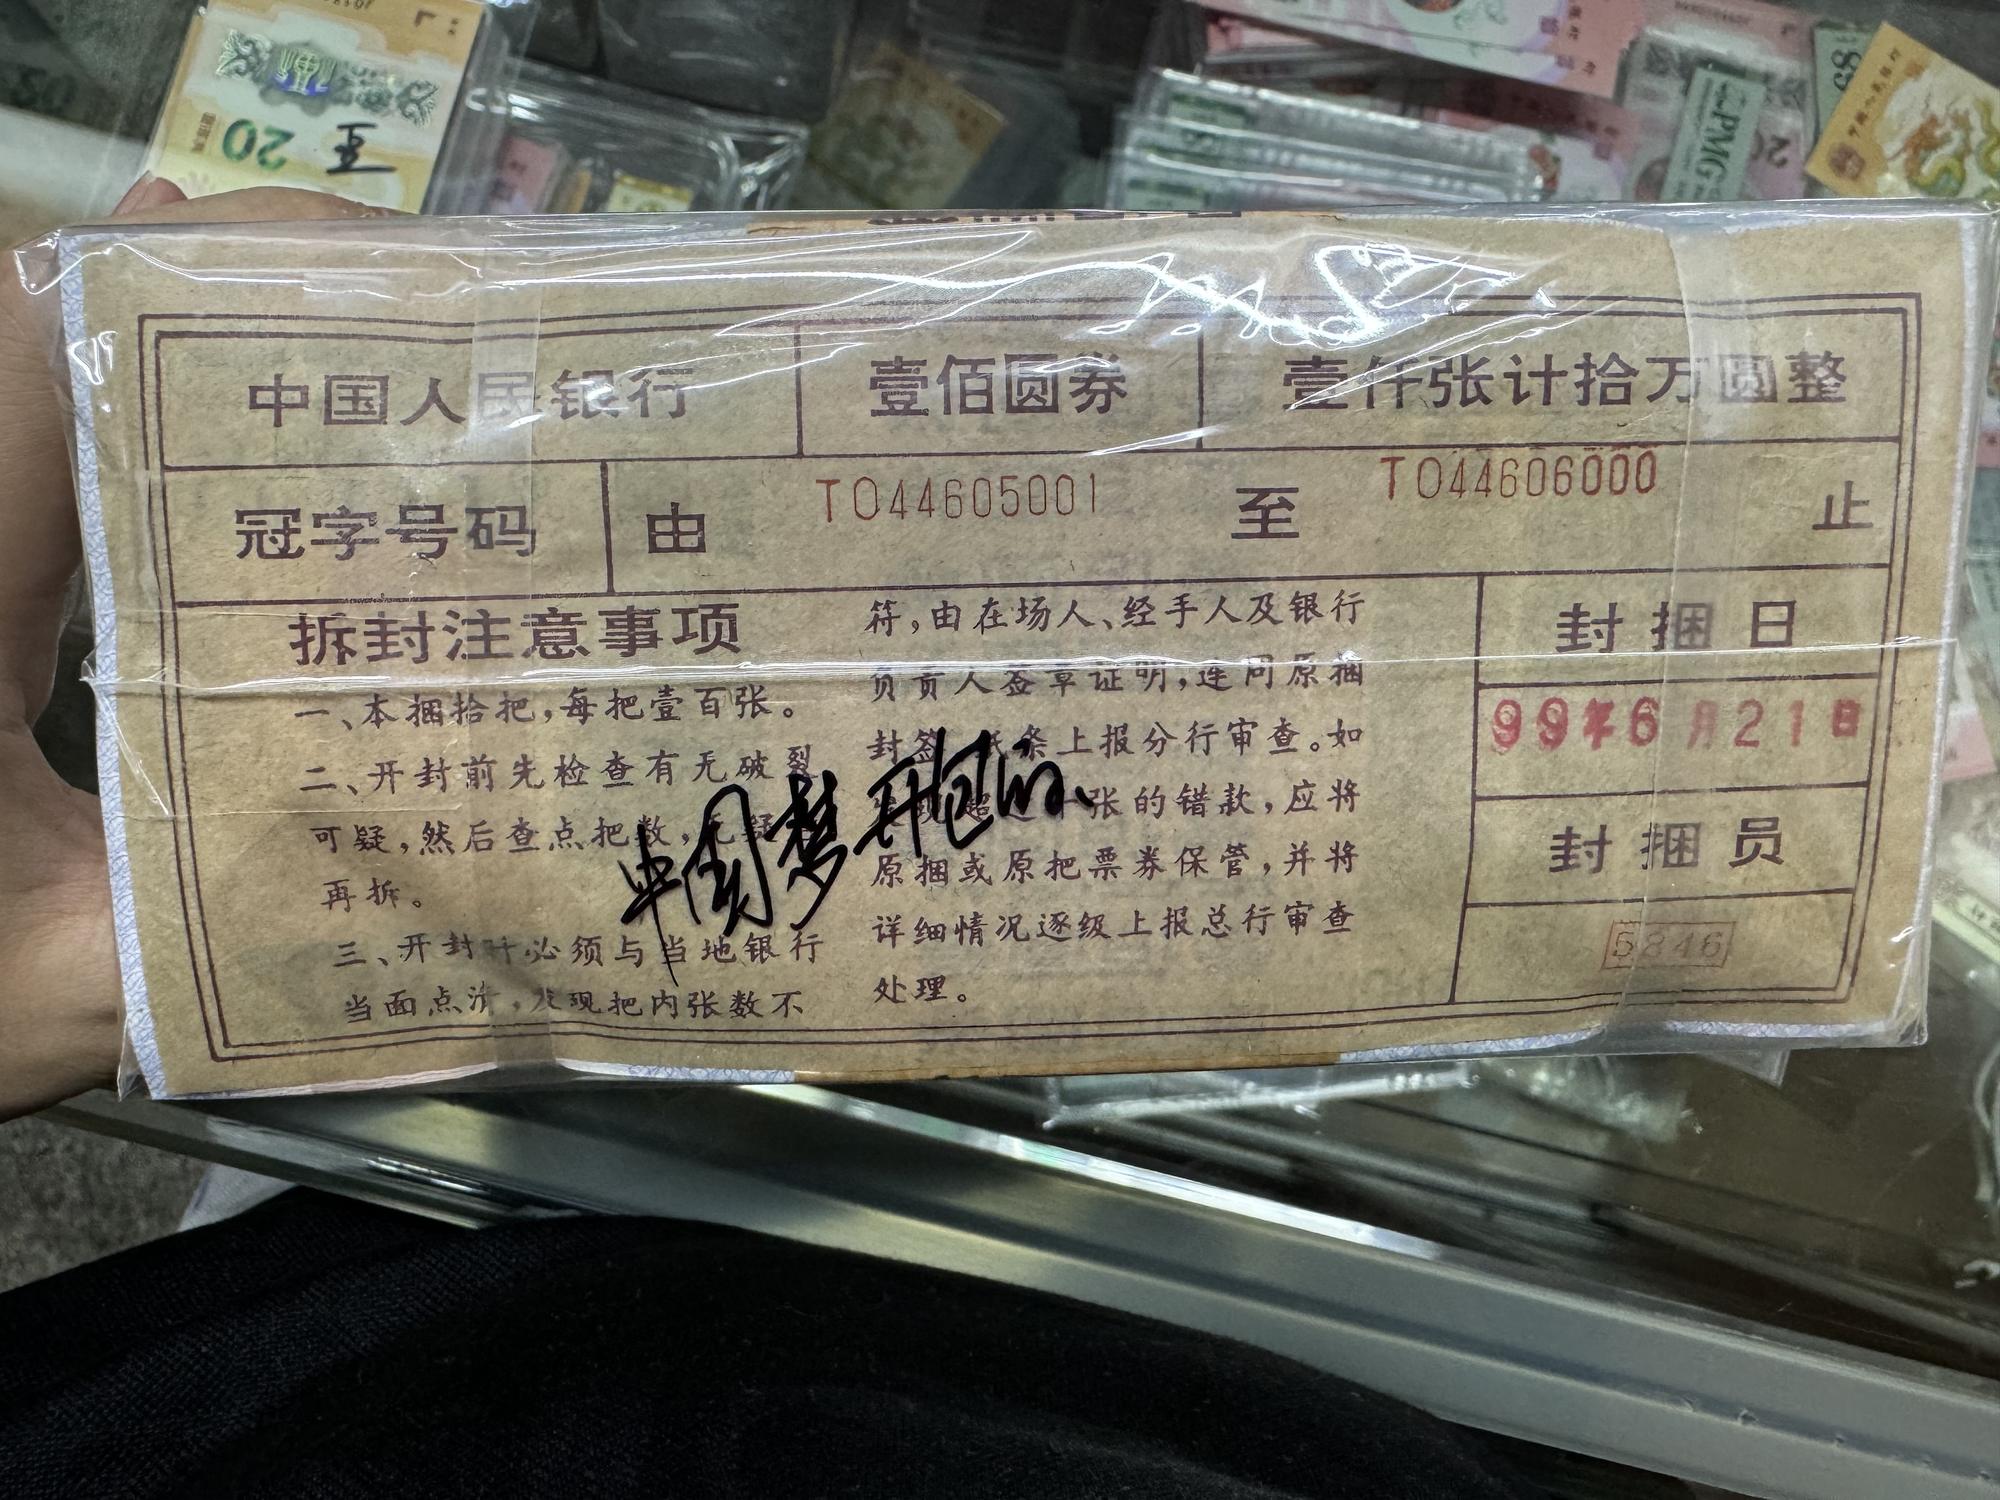 20
PMG
中国人民银行
壹佰圆券
壹仟张计拾万圆整
冠字号码
由
TO44605001
至
TO44606000
止
拆封注意事项
一、本捆拾把，每把壹百张。
二、开封前先检查有无破裂
可疑，然后查点把数，无疑
再拆。
三、开封时必须与当地银行
当面点清，发现把内张数不
符，由在场人、经手人及银行
负责人签章证明，连同原捆
封签、纸条上报分行审查。如
发现超过一张的错款，应将
原捆或原把票券保管，并将
详细情况逐级上报总行审查
处理。
中国梦
封捆日
99年6月21日
封捆员
5846